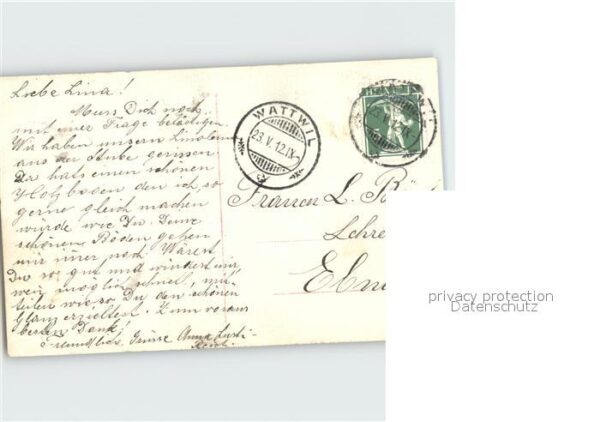 Liebe Lina!
Muss Dich noch
mit einer Frage belästigen.
Wir haben unsern Linoleum
aus der Stube gerissen
Da hats einen schönen
Holzboden den ich so
gerne gleich machen
würde wie Du. Deine
schönen Böden gehen
mir immer nach. Wärest
Du so gut und würdest mir,
wenn möglich
teilen wieso Du den schönen
Glanz erzieltest. Zum voraus
besten Dank!
Freundliche Grüsse Anna
WATTWIL
23.V.12.IX
HELVETIA
Frauen L.
Lehre
Ebn
privacy protection
Datenschutz